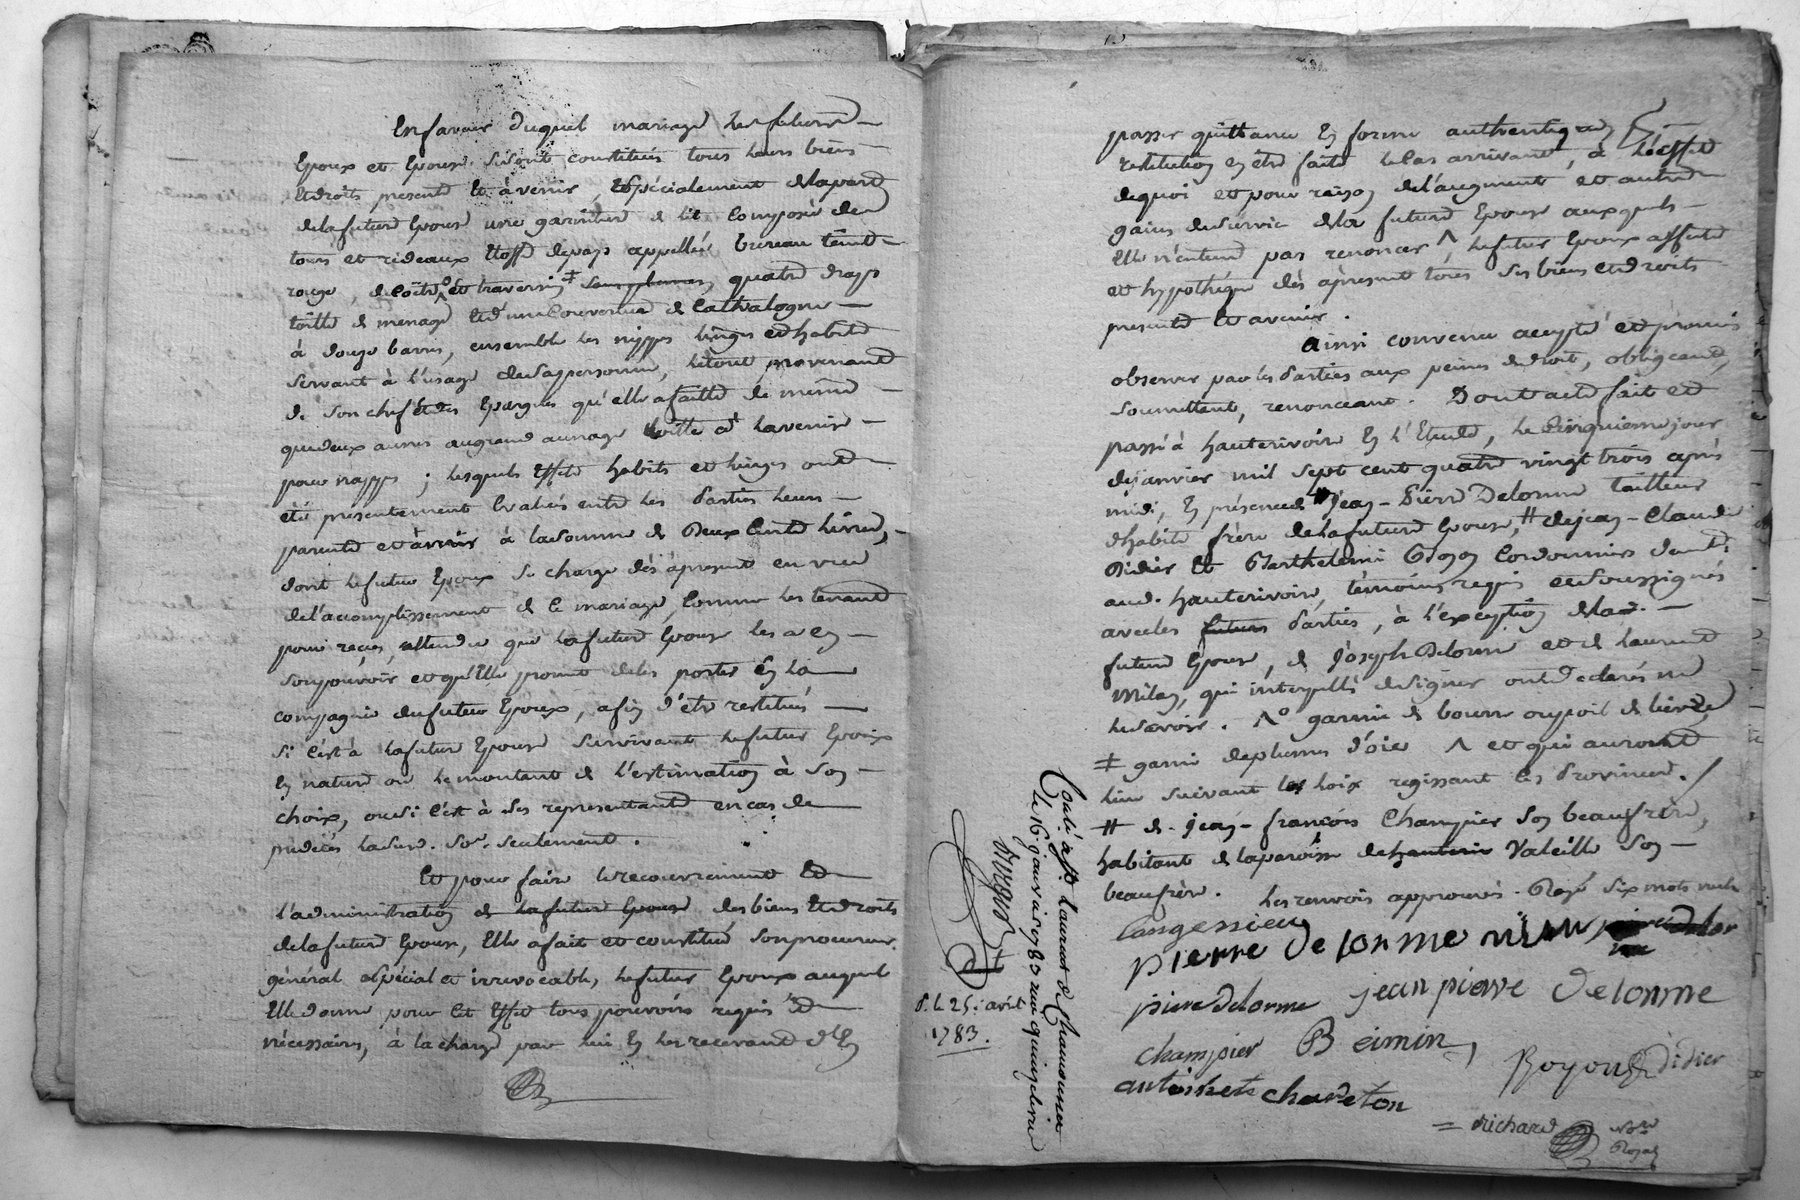 En faveur duquel mariage les futurs
Epoux et Epouse se sont constitués tous leurs biens
et droits present et avenir, et spécialement de la part
de la future Epouse une garniture de lit composée de
tours et rideaux Etoffe de pays appellée bureau teint
rouge, de coitre ^° et traversin ‡ sans plumes, quatre draps
toille de menage et d'une couverture de Cathalogne
à douze barres, ensemble les nippes linges et habits
servant à l'usage de sa personne, le tout provenant
de son chef et des Epargnes qu'elle a faitte de même
que deux aunes au grand aunage toille à lavenir
pour nappes ; lesquels Effets habits et linges ont
été presentement Evalués entre les Parties leurs
parents et amis à la somme de Deux Cents Livres,
dont le futur Epoux se charge dès àpresent en vue
de l'accomplissement de ce mariage, comme les tenant
pour reçus, attendu que la future Epouse les a en
son pouvoir et qu'elle promet de les porter en la
compagnie du futur Epoux, afin d'être restitués
si c'est à la future Epouse survivant le futur Epoux
en nature ou le montant de l'estimation à son
choix, ou si c'est à ses representants en cas de
prédécés lad. so.e seulement.
Et pour faire le recouvrement et
l'administration de la future Epouse des biens et droits
de la future Epouse, Elle a fait et constitué son procureur
général spécial et irrévocable, le futur Epoux auquel
Elle donne pour cet Effet tous pouvoirs requis et
nécessaires, à la charge par lui en les recevant d'en
passer quittance en forme authentique,
restitution en être faite le cas arrivant, à l'effet
de quoi et pour raison de l'augment et autres
gains de survie de la future Epouse auxquels
Elle n'entend pas renoncer ^ le futur Epoux affecte
et hypothéque dès àpresent tous ses biens et droits
presents et avenir.
Ainsi convenu accepté et promis
observer par les Parties aux peines de droit, obligeant,
soumettant, renonceant. Dont acte fait et
passé à hauterivoire En l'Etude, le cinquieme jour
de janvier mil sept cent quatre vingt trois après
midi, En présence de # jean-Pierre Delorme tailleur
d'habits frère de la future Epouse, # de jean-Claude
Didier et Barthelemi Royon Cordonniers dem.t
aud. hauterivoire, témoins requis et soussignés
avec les futurs Parties, à l'exception de lad.
future Epouse, de Joseph Delorme et de Laurent
Milan, qui interpellés de signer ont declaré ne
le savoir. ^° garnie de bourre ou poil de lievre
‡ garni de plumes d'oie ^ et qui auront
lieu suivant les loix regissant les Provinces. /
# de jean-françois Champier son beaufrère,
habitant de la paroisse de hauteriv Valeille son
beaufrère. Les renvois approuvés. Rayé six mots nuls
Langessieu
pierre Delorme
pierre delorme jean pierre Delorme
champier B Eimin
Royon Didier
antoinette chareton
Richard
No.re
Royal
Contr.é
le 16 janvier 1783 reçu quinze livres
p. le 25. avril
1783.